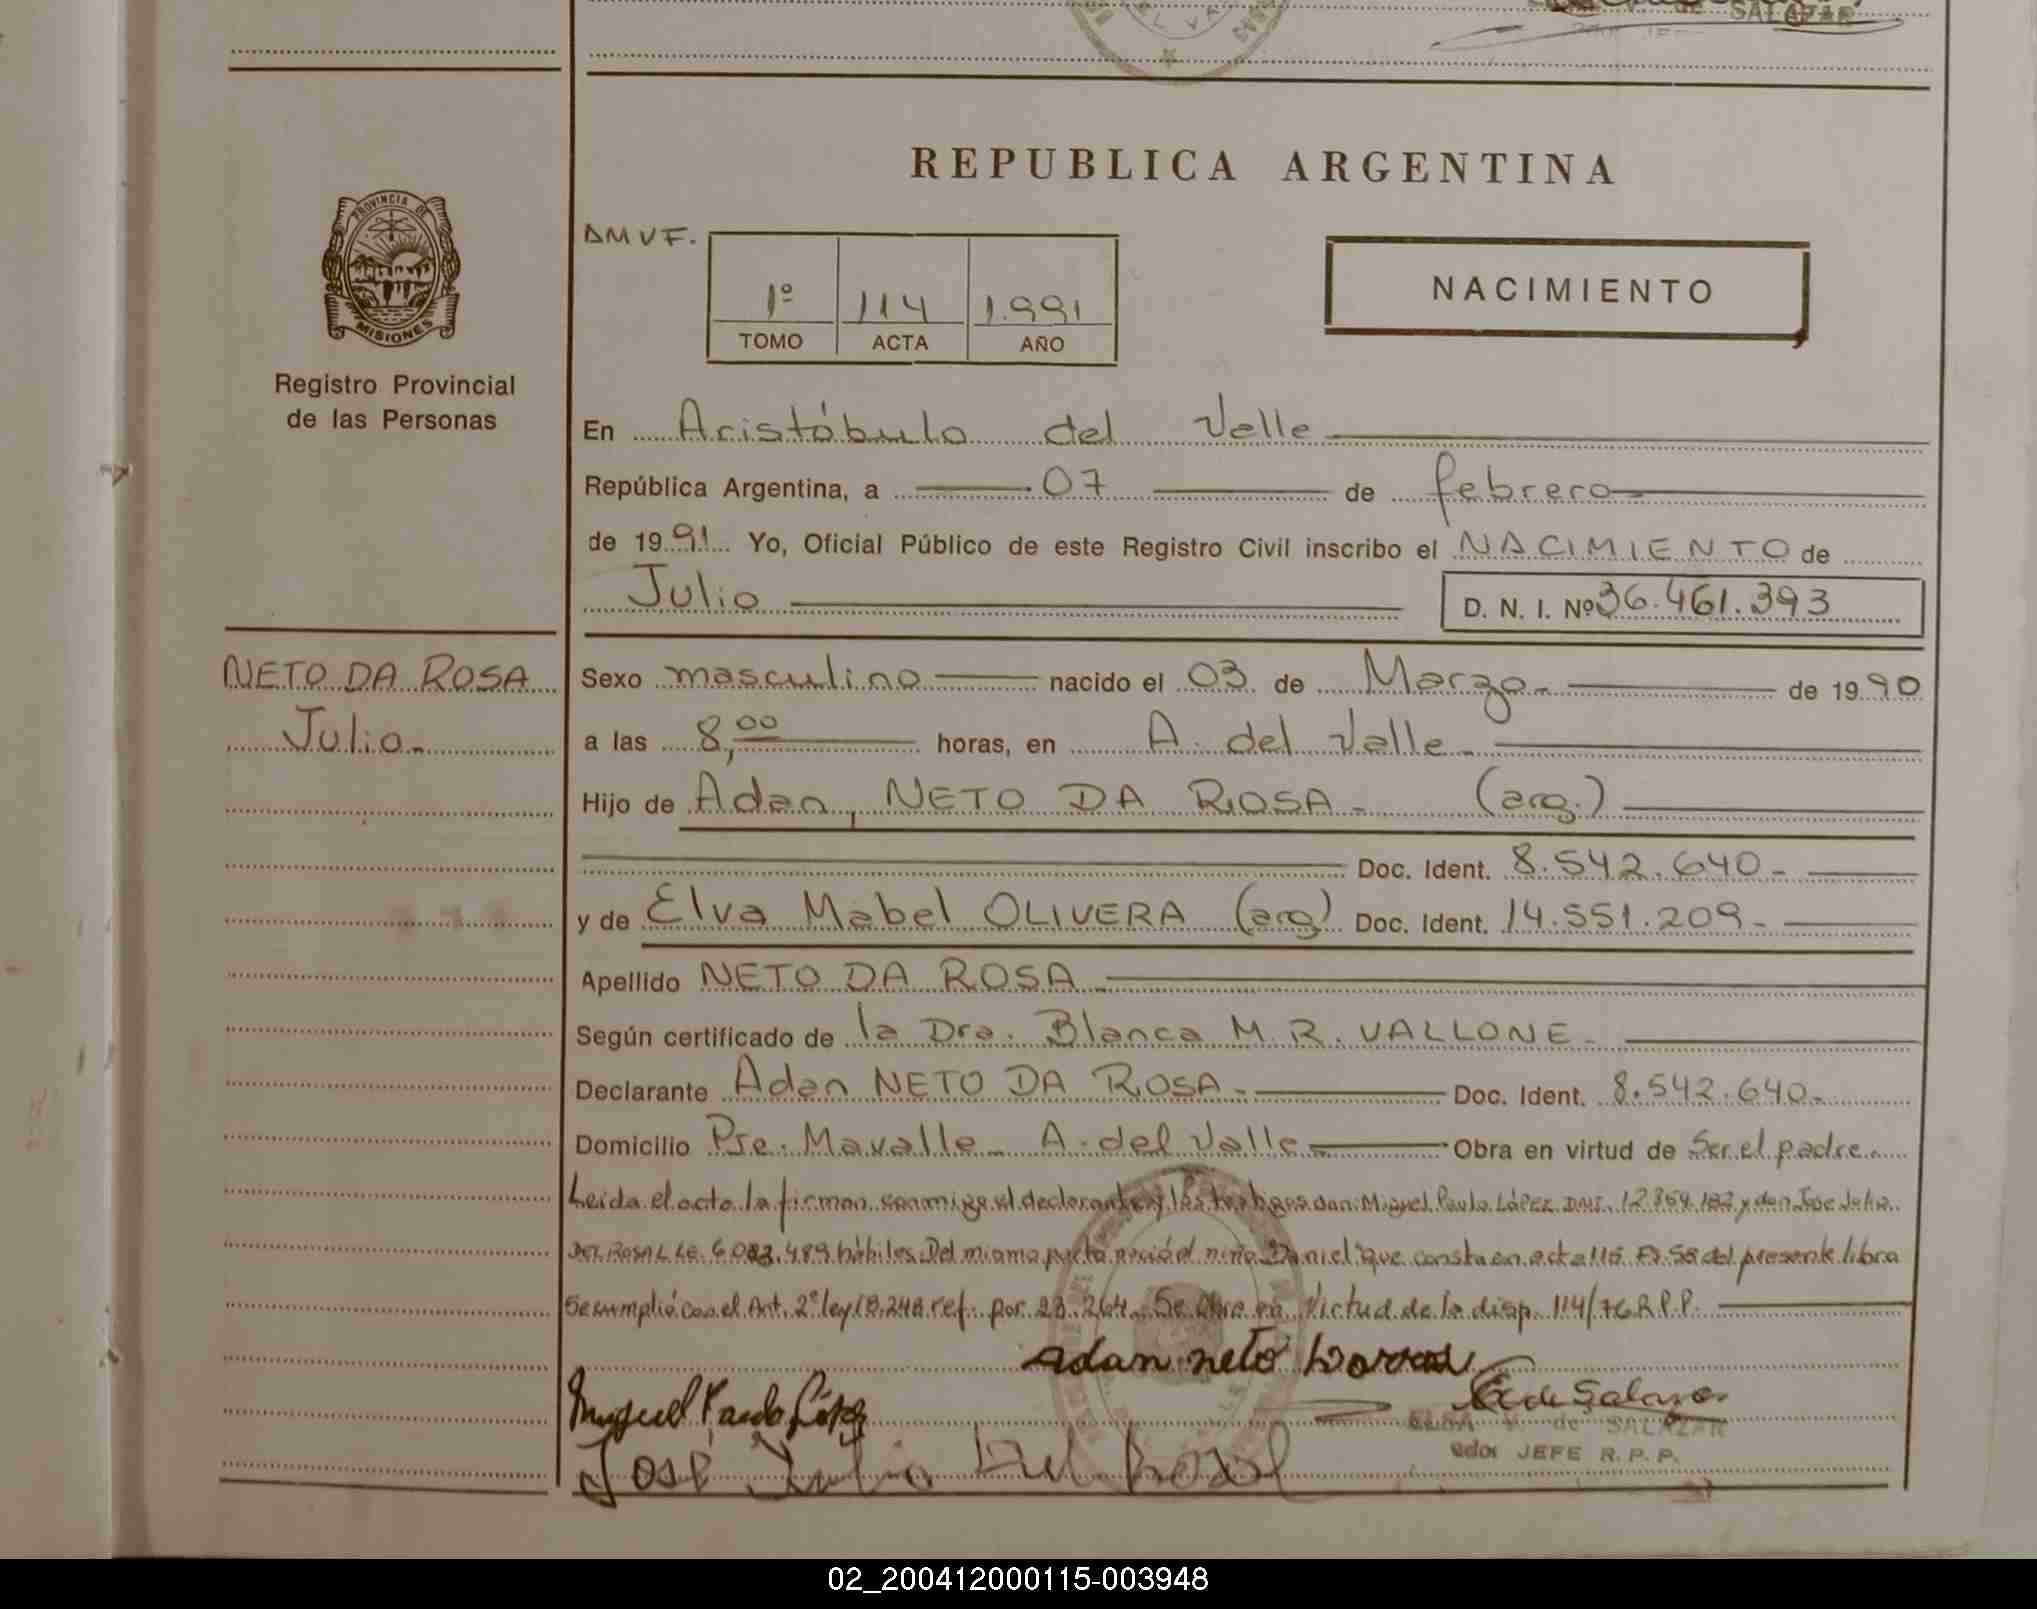 SALAZAR
REPUBLICA ARGENTINA
PROVINCIA DE
MISIONES
DMVF.
1º 114 1.991
TOMO ACTA AÑO
NACIMIENTO
Registro Provincial
de las Personas
En Aristóbulo del Valle
República Argentina, a 07 de febrero
de 1991 Yo, Oficial Público de este Registro Civil inscribo el NACIMIENTO de
Julio D. N. I. Nº 36.461.393
NETO DA ROSA
Julio.
Sexo masculino nacido el 03 de Marzo de 1990
a las 8,00 horas, en A. del Valle.
Hijo de Adan, NETO DA ROSA (arg.)
Doc. Ident. 8.542.640
y de Elva Mabel OLIVERA (arg) Doc. Ident. 14.551.209
Apellido NETO DA ROSA
Según certificado de la Dra. Blanca M. R. VALLONE
Declarante Adan NETO DA ROSA Doc. Ident. 8.542.640
Domicilio Pje. Mavalle A. del Valle Obra en virtud de Ser el padre
Leida el acta la firman conmigo el declarante y los testigos don Miguel Paulo LÓPEZ DNI. y don Jose Julio
DEL ROSAL LE. hábiles. Del mismo parto nació el niño Daniel que consta en acta 115 Fº 58 del presente libro
Se cumplió con el Art. 2º ley 18.248 ref. por 23.264. Se obra en Virtud de la disp. 114/76 R.P.P.
adan neto
Miguel Paulo López
de Salazar
ELSA V. de SALAZAR
JEFE R. P. P.
José Julio Del Rosal
02_200412000115-003948